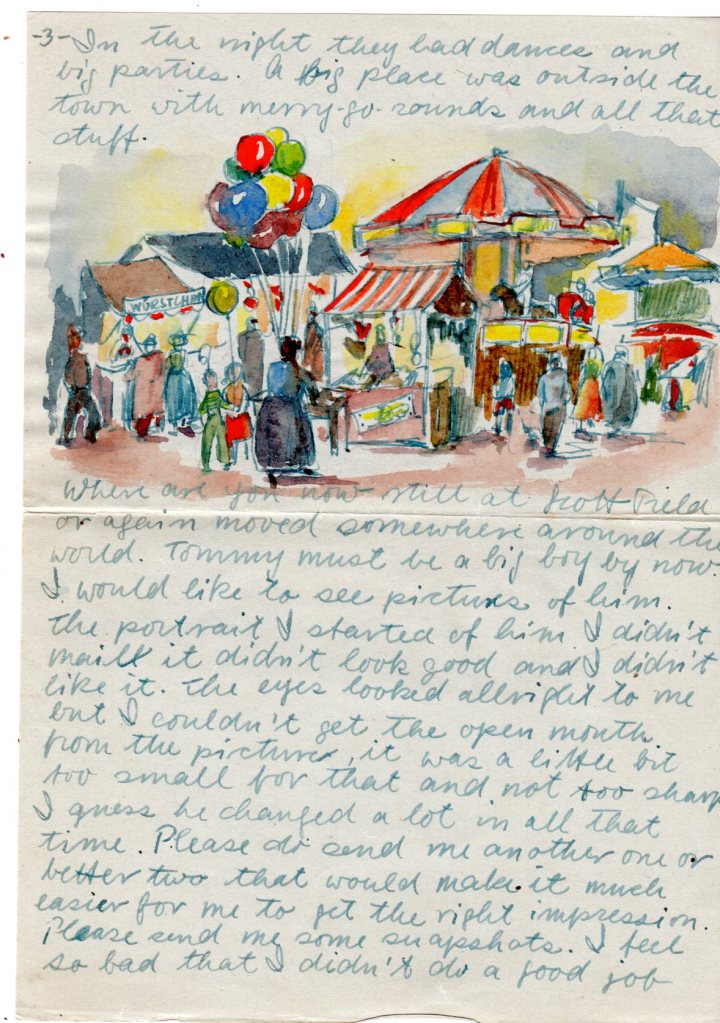 -3- In the night they had dances and
big parties. A big place was outside the
town with merry-go-rounds and all that
stuff.
WÜRSTCHEN
Where are you now still at Scott Field
or again moved somewhere around the
world. Tommy must be a big boy by now.
I would like to see pictures of him.
The portrait I started of him I didn't
mail it didn't look good and I didn't
like it. The eyes looked allright to me
but I couldn't get the open mouth
from the picture, it was a little bit
too small for that and not too sharp
I guess he changed a lot in all that
time. Please do send me another one or
better two that would make it much
easier for me to get the right impression.
Please send me some snapshots. I feel
so bad that I didn't do a good job